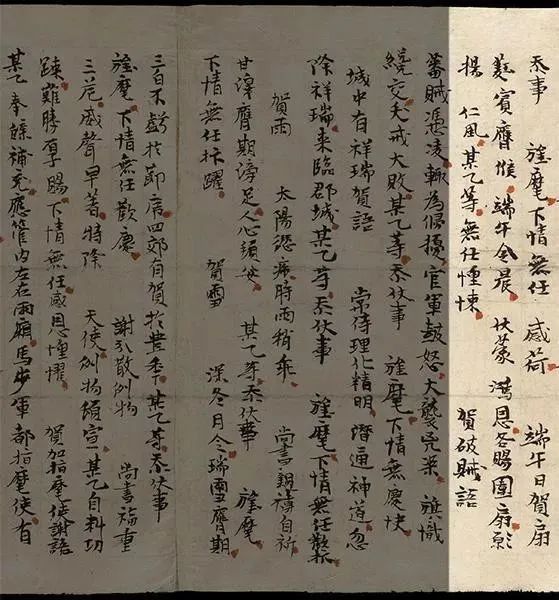 忝事　旌麾下情無任　感荷　端午日賀扇
蕤賓膺候端午令晨　伏蒙　鴻恩各賜團扇願
揚　仁風某乙等無任惶悚　賀破賊語
蕃賊憑凌輙為侵擾官軍鼓怒大襲兇渠　旌識
纔交夭戒大敗某乙等忝伏事　旌麾下情無慶快
城中有祥瑞賀語　常侍理化精明潛通神道忽
降祥瑞來臨郡城某乙等忝伏事　旌麾下情無任歡抃
賀雨　太陽恣序時雨稍乖　尚書親禱自祈
甘澤膺期滂足人心頓安　某乙等忝伏事　旌麾
下情無任抃躍　賀雪　深冬月令瑞雪膺期
三白不虧於節序四郊有賀於豐年某乙等忝伏事
旌麾下情無任歡慶　謝引散例物　尚書福重
三危威聲早著特降　天使例物頒宣某乙自料功
踈難勝厚賜下情無任感恩惶懼　賀加指麾使謝語
某乙奉牒補充應管內左右兩廂馬步軍都指麾使有